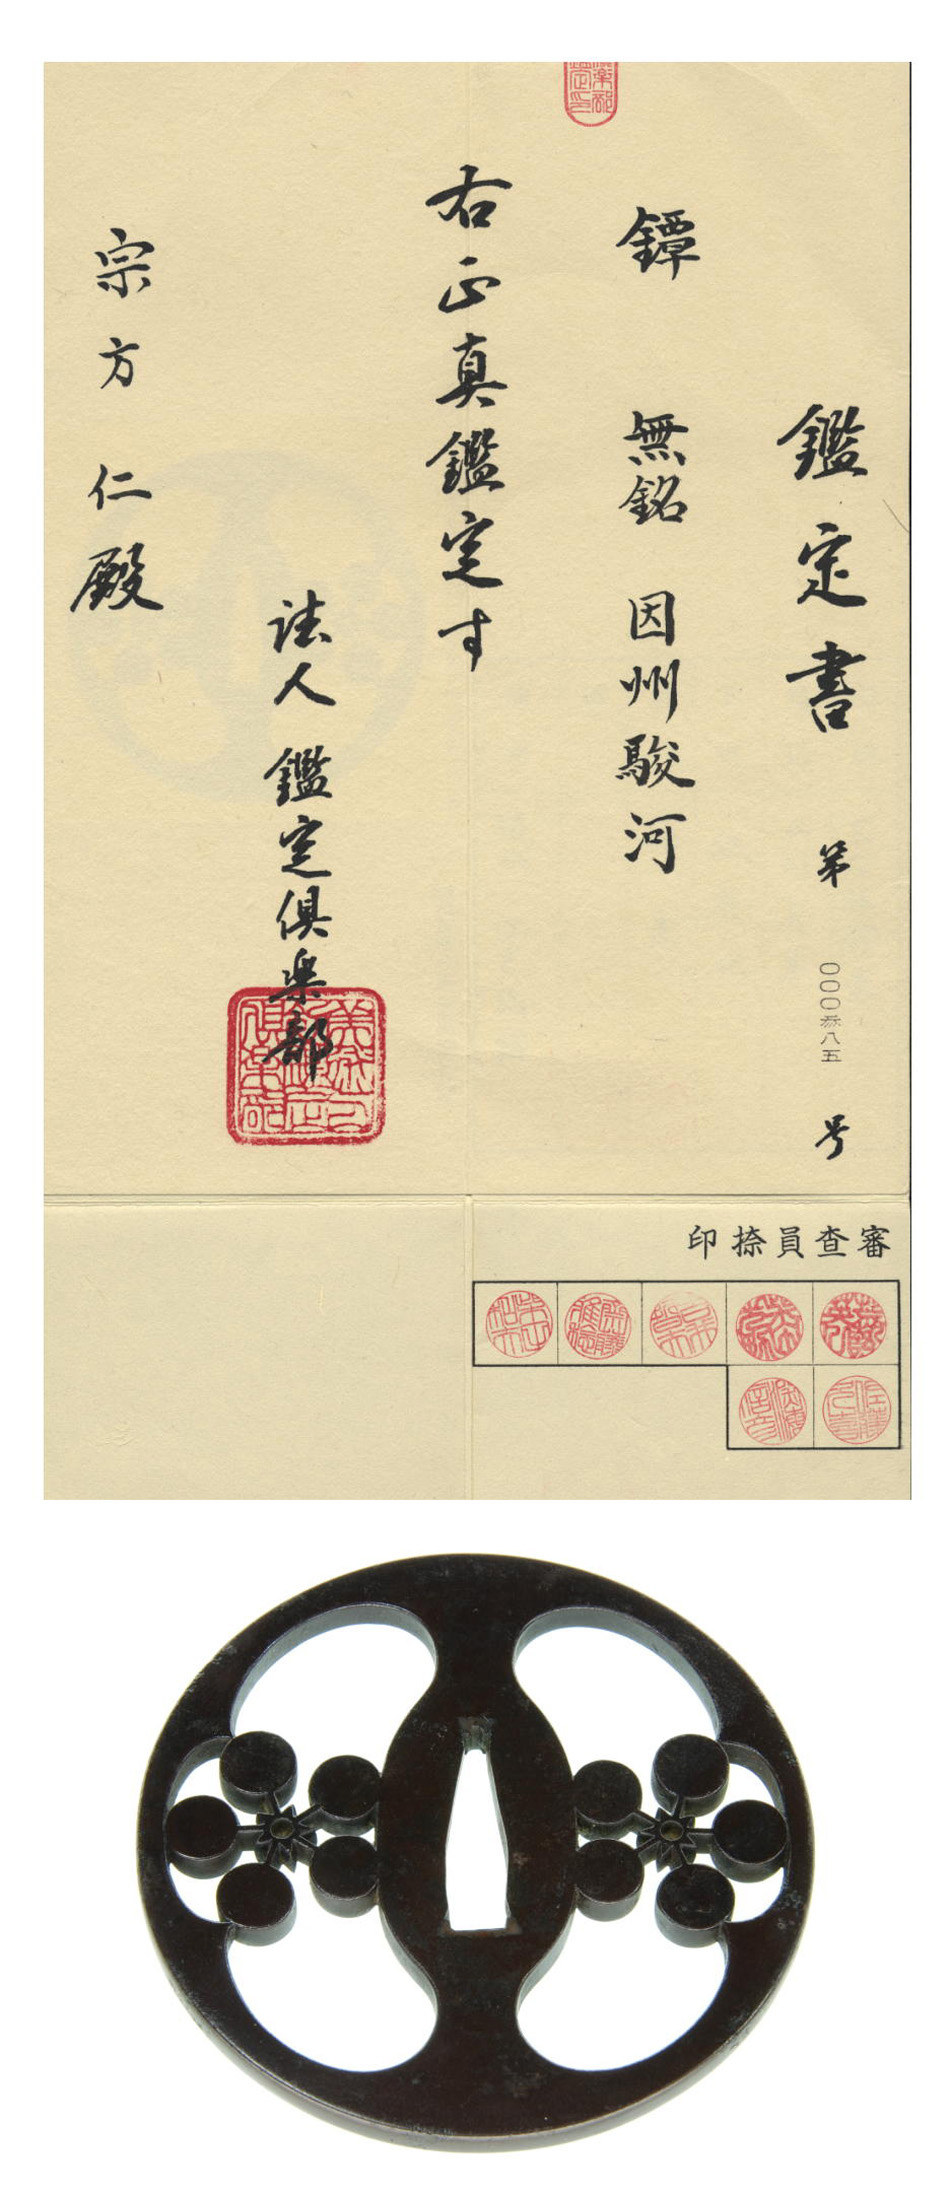 鑑定書 第 〇〇〇参八五 号
鐔 無銘 因州駿河
右正真鑑定す
法人 鑑定倶楽部
宗方 仁殿
審査員捺印